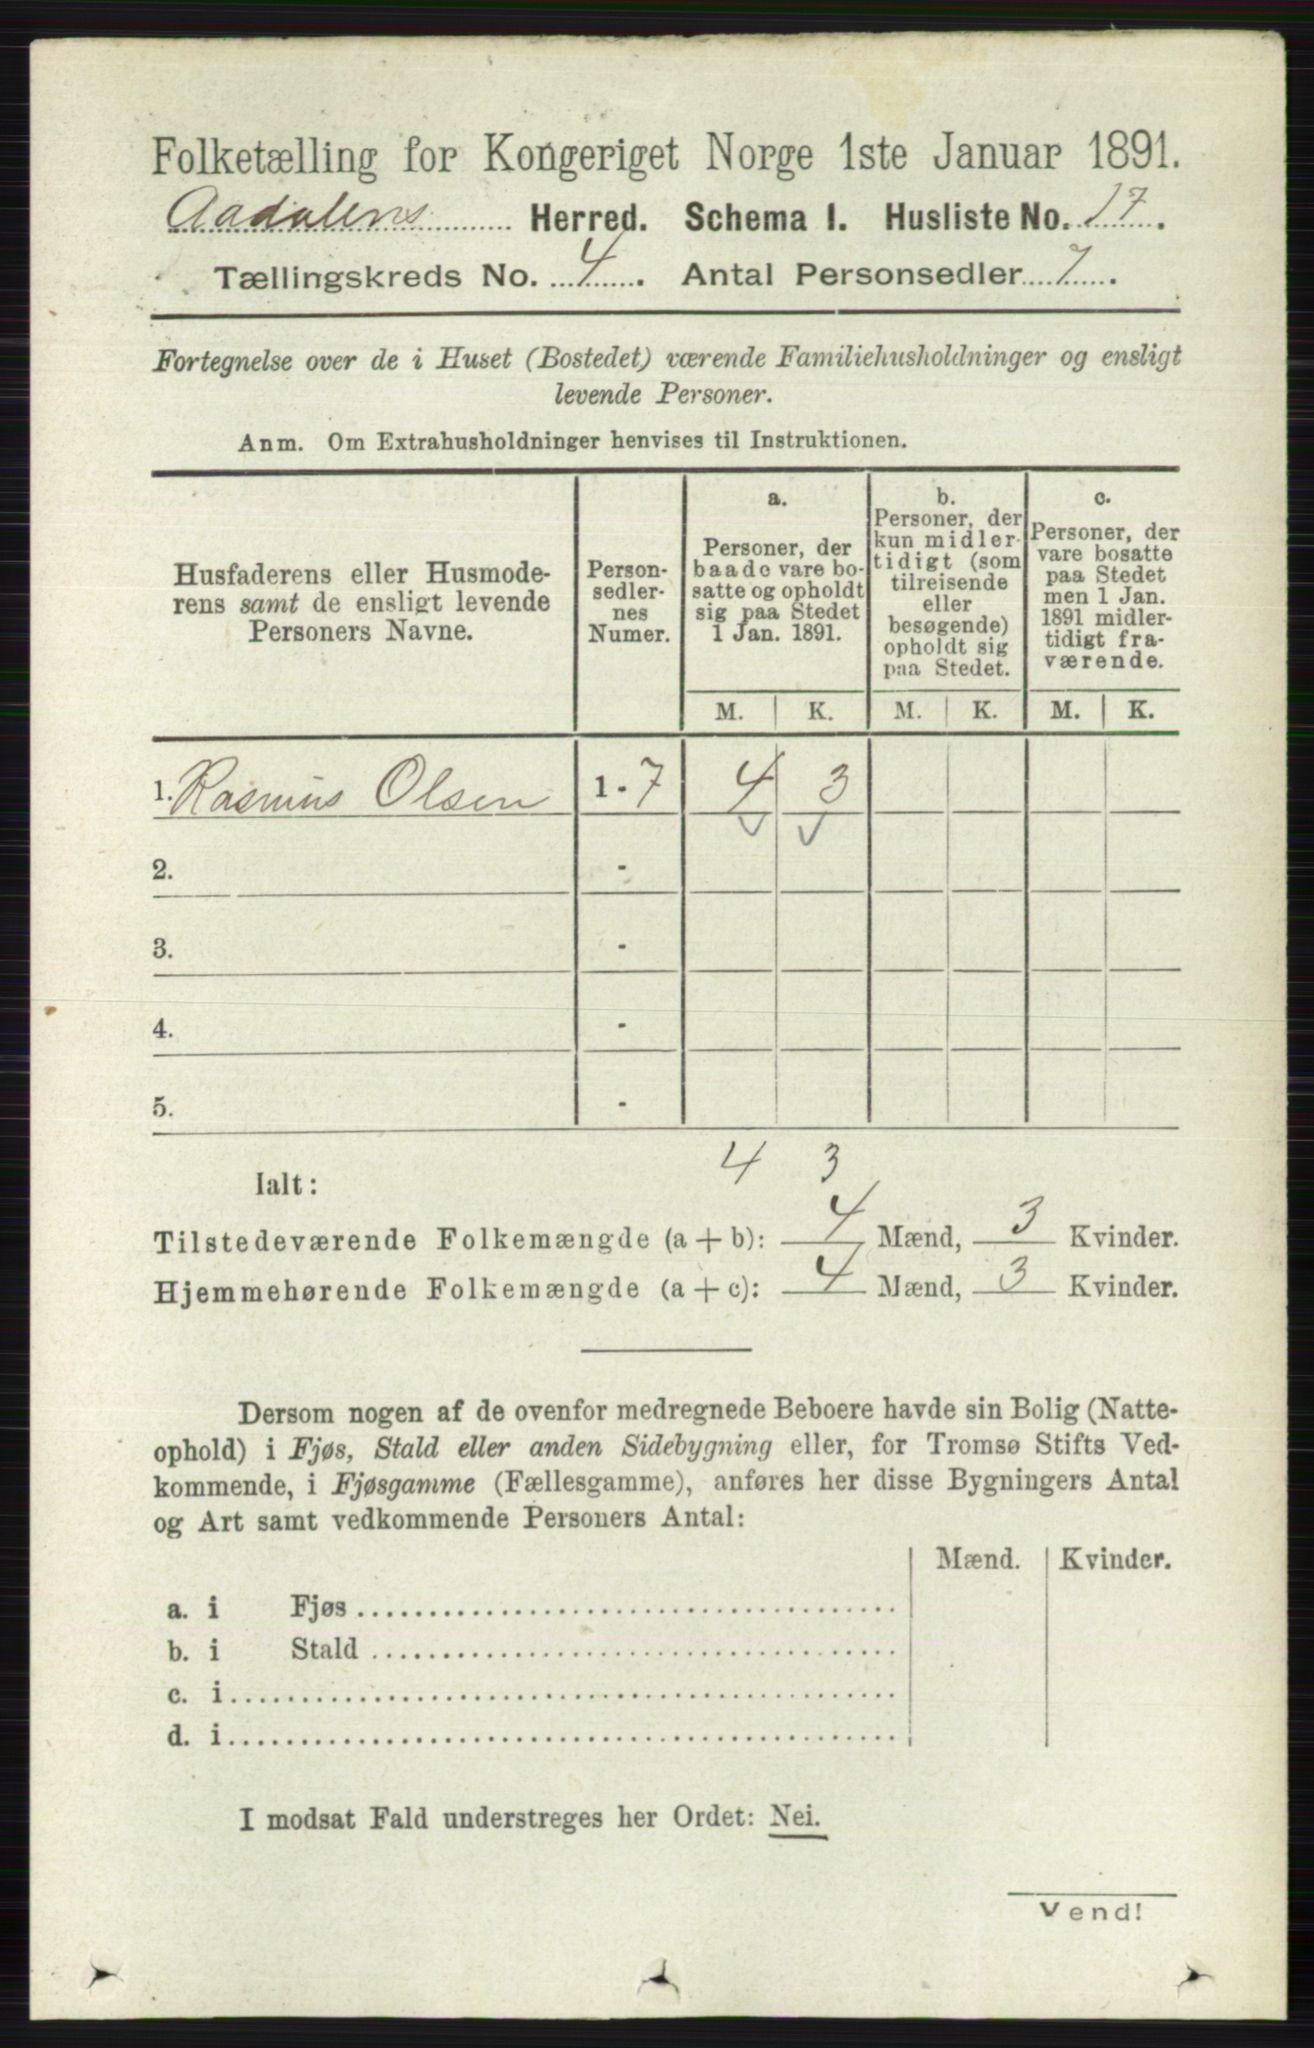 Folketælling for Kongeriget Norge 1ste Januar 1891.
Aadalens Herred. Schema I. Husliste No. 17.
Tællingskreds No. 4. Antal Personsedler 7.
Fortegnelse over de i Huset (Bostedet) værende Familiehusholdninger og ensligt
levende Personer.
Anm. Om Extrahusholdninger henvises til Instruktionen.
Husfaderens eller Husmode-
rens samt de ensligt levende
Personers Navne.
Person-
sedler-
nes
Numer.
a.
Personer, der
baade vare bo-
satte og opholdt
sig paa Stedet
1 Jan. 1891.
b.
Personer, der
kun midler-
tidigt (som
tilreisende
eller
besøgende)
opholdt sig
paa Stedet.
c.
Personer, der
vare bosatte
paa Stedet
men 1 Jan.
1891 midler-
tidigt fra-
værende.
M. K. M. K. M. K.
1. Rasmus Olsen 1 - 7 4 3
2. -
3. -
4. -
5. -
4 3
Ialt:
Tilstedeværende Folkemængde (a + b): 4 Mænd, 3 Kvinder.
Hjemmehørende Folkemængde (a + c): 4 Mænd, 3 Kvinder.
Dersom nogen af de ovenfor medregnede Beboere havde sin Bolig (Natte-
ophold) i Fjøs, Stald eller anden Sidebygning eller, for Tromsø Stifts Ved-
kommende, i Fjøsgamme (Fællesgamme), anføres her disse Bygningers Antal
og Art samt vedkommende Personers Antal:
Mænd. Kvinder.
a. i Fjøs
b. i Stald
c. i
d. i
I modsat Fald understreges her Ordet: Nei.
Vend!